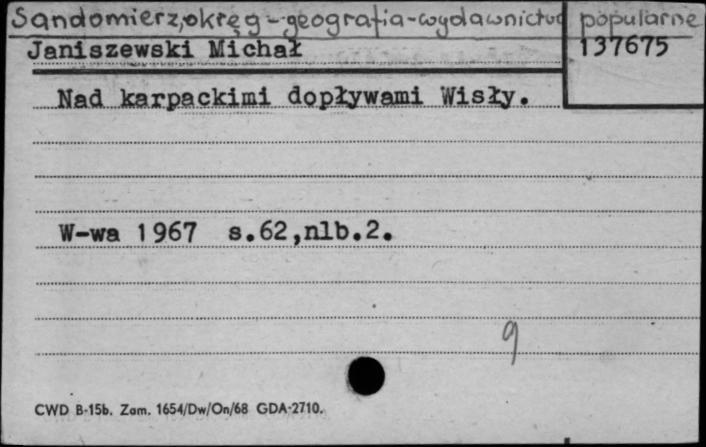 Sandomierz, okręg - geografia - wydawnictwa popularne
Janiszewski Michał
137675
Nad karpackimi dopływami Wisły.
W-wa 1967 s.62,nlb.2.
9
CWD B-15b. Zam. 1654/Dw/On/68 GDA-2710.